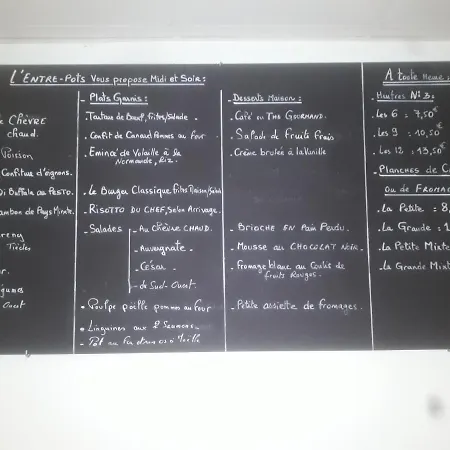 L'ENTRE-POTS Vous propose Midi et Soir:
CHÈVRE
chaud.
Poisson
Confiture d'oignons.
Buffala au PESTO.
Jambon de Pays Minute.
Plats Garnis:
- Tartare de Bœuf, frites/Salade.
- Confit de Canard Pommes au Four
- Emincé de Volaille à la
Normande, Riz.
- Le Burger Classique, frites Maison/Salade
- RISOTTO DU CHEF, Selon Arrivage.
- Salades
- Au CHÈVRE CHAUD.
- Auvergnate.
- César.
- du Sud-Ouest
- Poulpe poêlé pommes au four
- Linguines aux 2 Saumons.
Desserts Maison:
- Café ou Thé GOURMAND.
- Salade de Fruits Frais
- Crème brulée à la Vanille
- BRIOCHE EN Pain Perdu.
- Mousse au CHOCOLAT NOIR.
- Fromage blanc au Coulis de
fruits Rouges.
- Petite assiette de fromages.
A toute Heure:
- Huitres N°3:
- Les 6 = 7,50€
- Les 9 = 10,50€
- Les 12 = 13,50€
- Planches de
ou de FROMAGE
- La Petite = 8,
- La Grande = 1
- La Petite Mixte
- La Grande Mixte